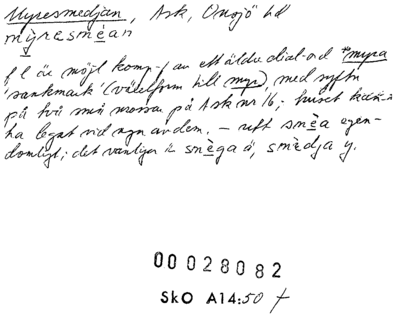 Myresmedjan, Ask, Onsjö hd
mỳresmèan
f l är möjl komp-f av ett äldre dial-ord *myra
'sankmark' (växelform till myr) med syftn
på två små mossar på Ask nr 16; huset kan
ha legat vid ngn av dem. – utt smèa egen-
domligt; det vanliga är smèga ä, smèdja y.
00028082
SkO A14:50 +